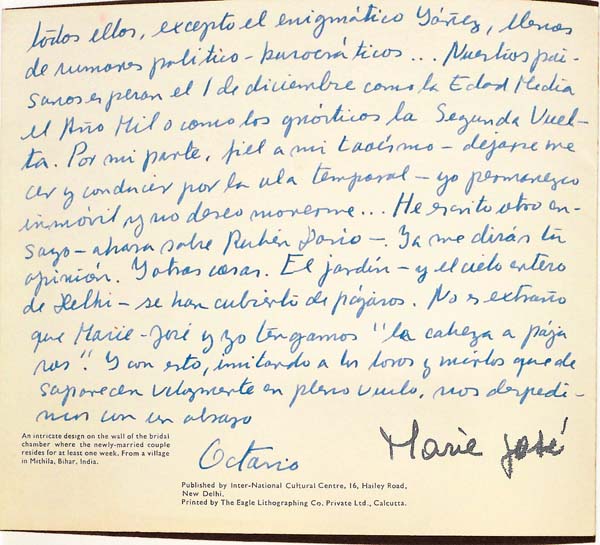 todos ellos, excepto el enigmático Yáñez, llenos
de rumores político-burocráticos... Nuestros pai-
sanos esperan el 1 de diciembre como la Edad Media
el Año Mil o como los gnósticos la Segunda Vuel-
ta. Por mi parte, fiel a mi taoísmo - dejarse me
cer y conducir por la ola temporal - yo permanezco
inmóvil y no deseo moverme... He escrito otro en-
sayo - ahora sobre Rubén Darío -. Ya me dirás tu
opinión. Y otras cosas. El jardín - y el cielo entero
de Delhi - se han cubierto de pájaros. No es extraño
que Marie-José y yo tengamos "la cabeza a pája
ros". Y con esto, imitando a los loros y mirlos que de
saparecen velozmente en pleno vuelo, nos despedi-
mos con un abrazo
Octavio
Marie José
An intricate design on the wall of the bridal
chamber where the newly-married couple
resides for at least one week. From a village
in Mithila, Bihar, India.
Published by Inter-National Cultural Centre, 16, Hailey Road,
New Delhi.
Printed by The Eagle Lithographing Co. Private Ltd., Calcutta.